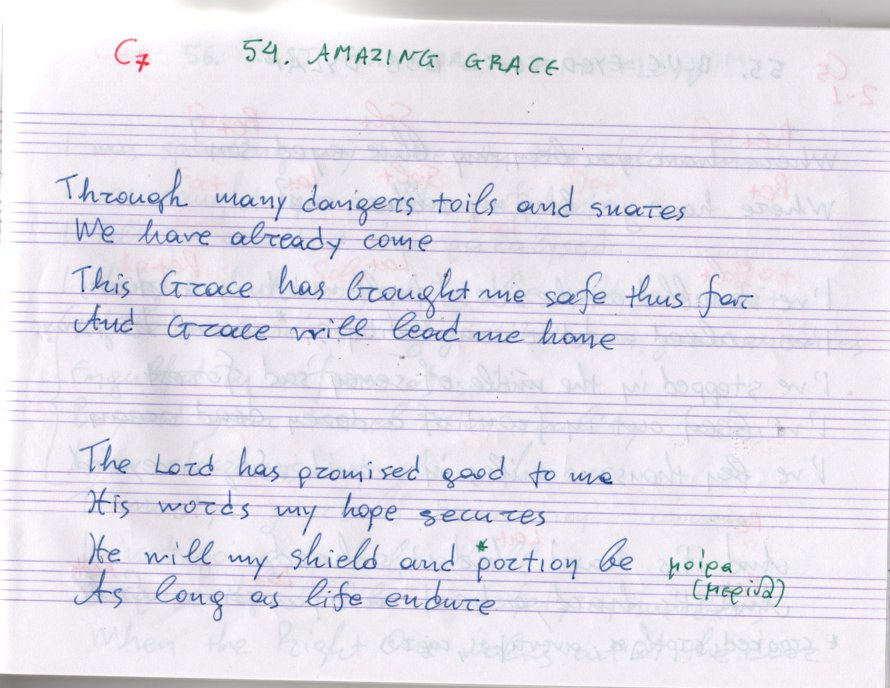 C7 54. AMAZING GRACE
Through many dangers toils and snares
We have already come
This Grace has brought me safe thus far
And Grace will lead me home
The Lord has promised good to me
His words my hope secures
He will my shield and *portion be μοίρα
(μερίδα)
As long as life endure